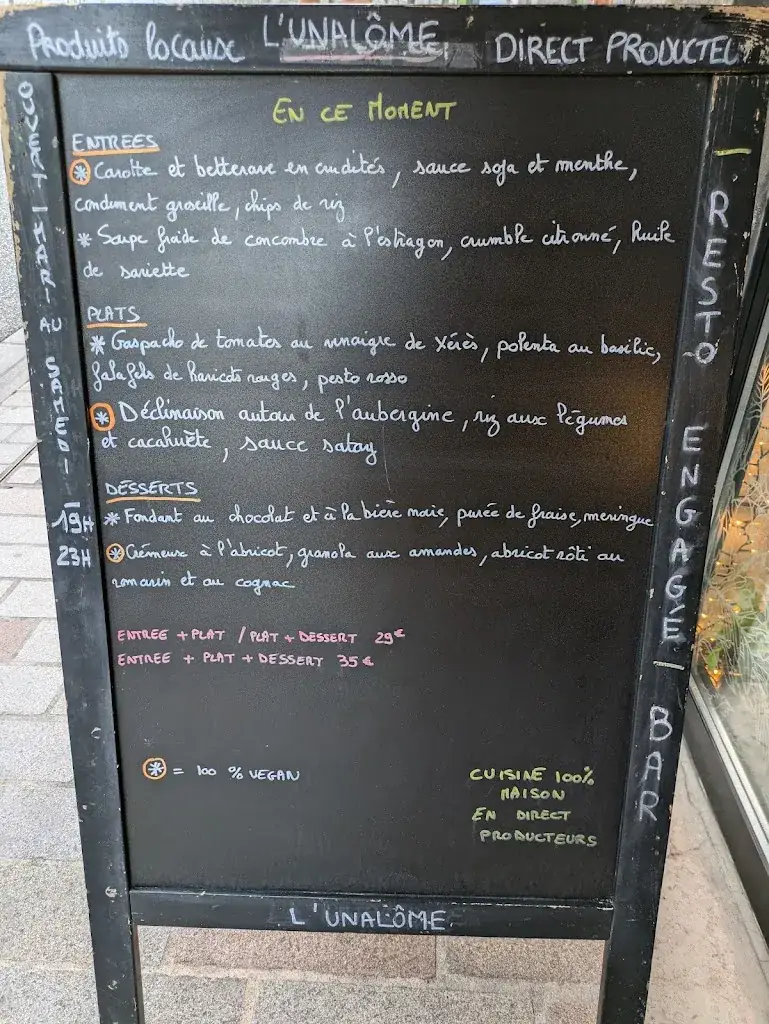 Produits locaux L'UNALÔME DIRECT PRODUCTEU
OUVERT MARDI AU SAMEDI
19H-
23H
EN CE MOMENT
ENTREES
* Carotte et betterave en crudités, sauce soja et menthe,
condiment groseille, chips de riz
* Soupe froide de concombre à l'estragon, crumble citronné, huile
de sariette
PLATS
* Gaspacho de tomates au vinaigre de Xérès, polenta au basilic,
falafels de haricots rouges, pesto rosso
* Déclinaison autour de l'aubergine, riz aux légumes
et cacahuète, sauce satay
DESSERTS
* Fondant au chocolat et à la bière Maie, purée de fraise, meringue
* Crémeux à l'abricot, granola aux amandes, abricot rôti au
romarin et au cognac
ENTREE + PLAT / PLAT + DESSERT 29€
ENTREE + PLAT + DESSERT 35€
* = 100 % VEGAN
CUISINE 100%
MAISON
EN DIRECT
PRODUCTEURS
| RESTO ENGAGÉ | BAR
L'UNALÔME